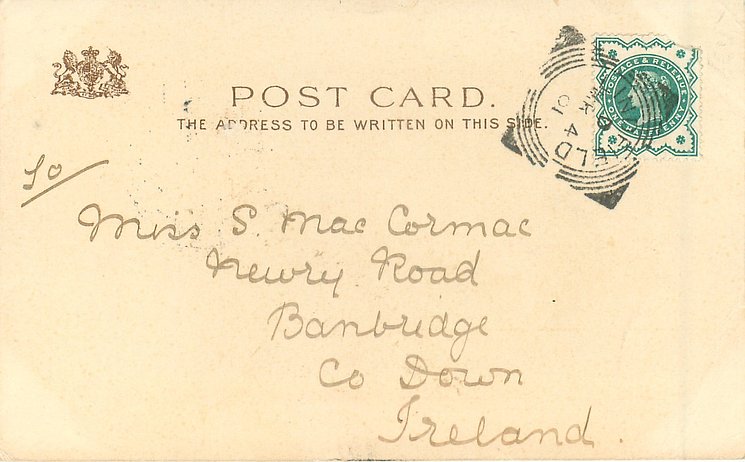 POST CARD.
THE ADDRESS TO BE WRITTEN ON THIS SIDE.
POSTAGE & REVENUE
MR 4
01
To
Miss S. Mac Cormac
Newry Road
Banbridge
Co Down
Ireland.